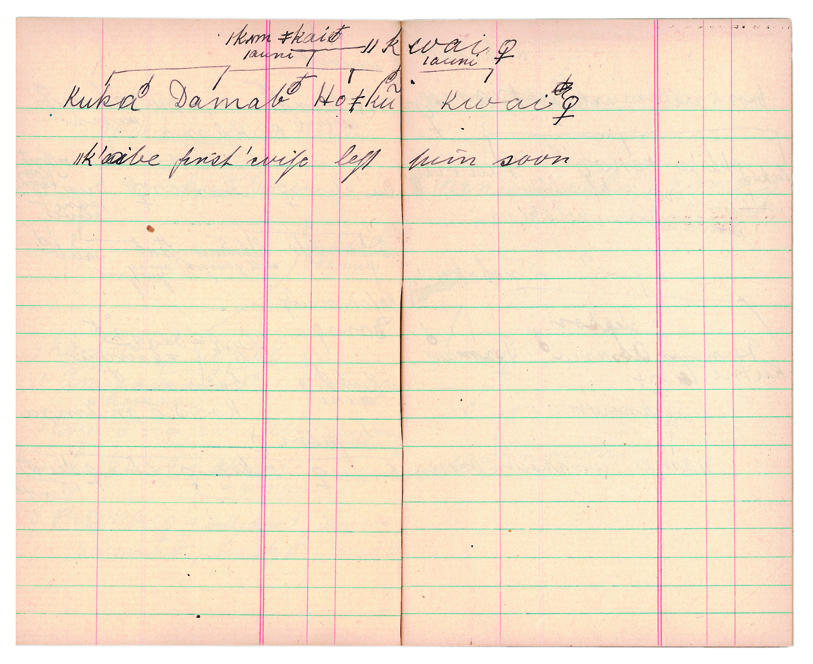 ǀkʌm ǂkai♂ ǁkwai ♀
ǀauni ǀauni
Kuka♂ Damab♂ Ho ǂkũ♂ Kwai ♀
ǁk'aibe first wife left him soon